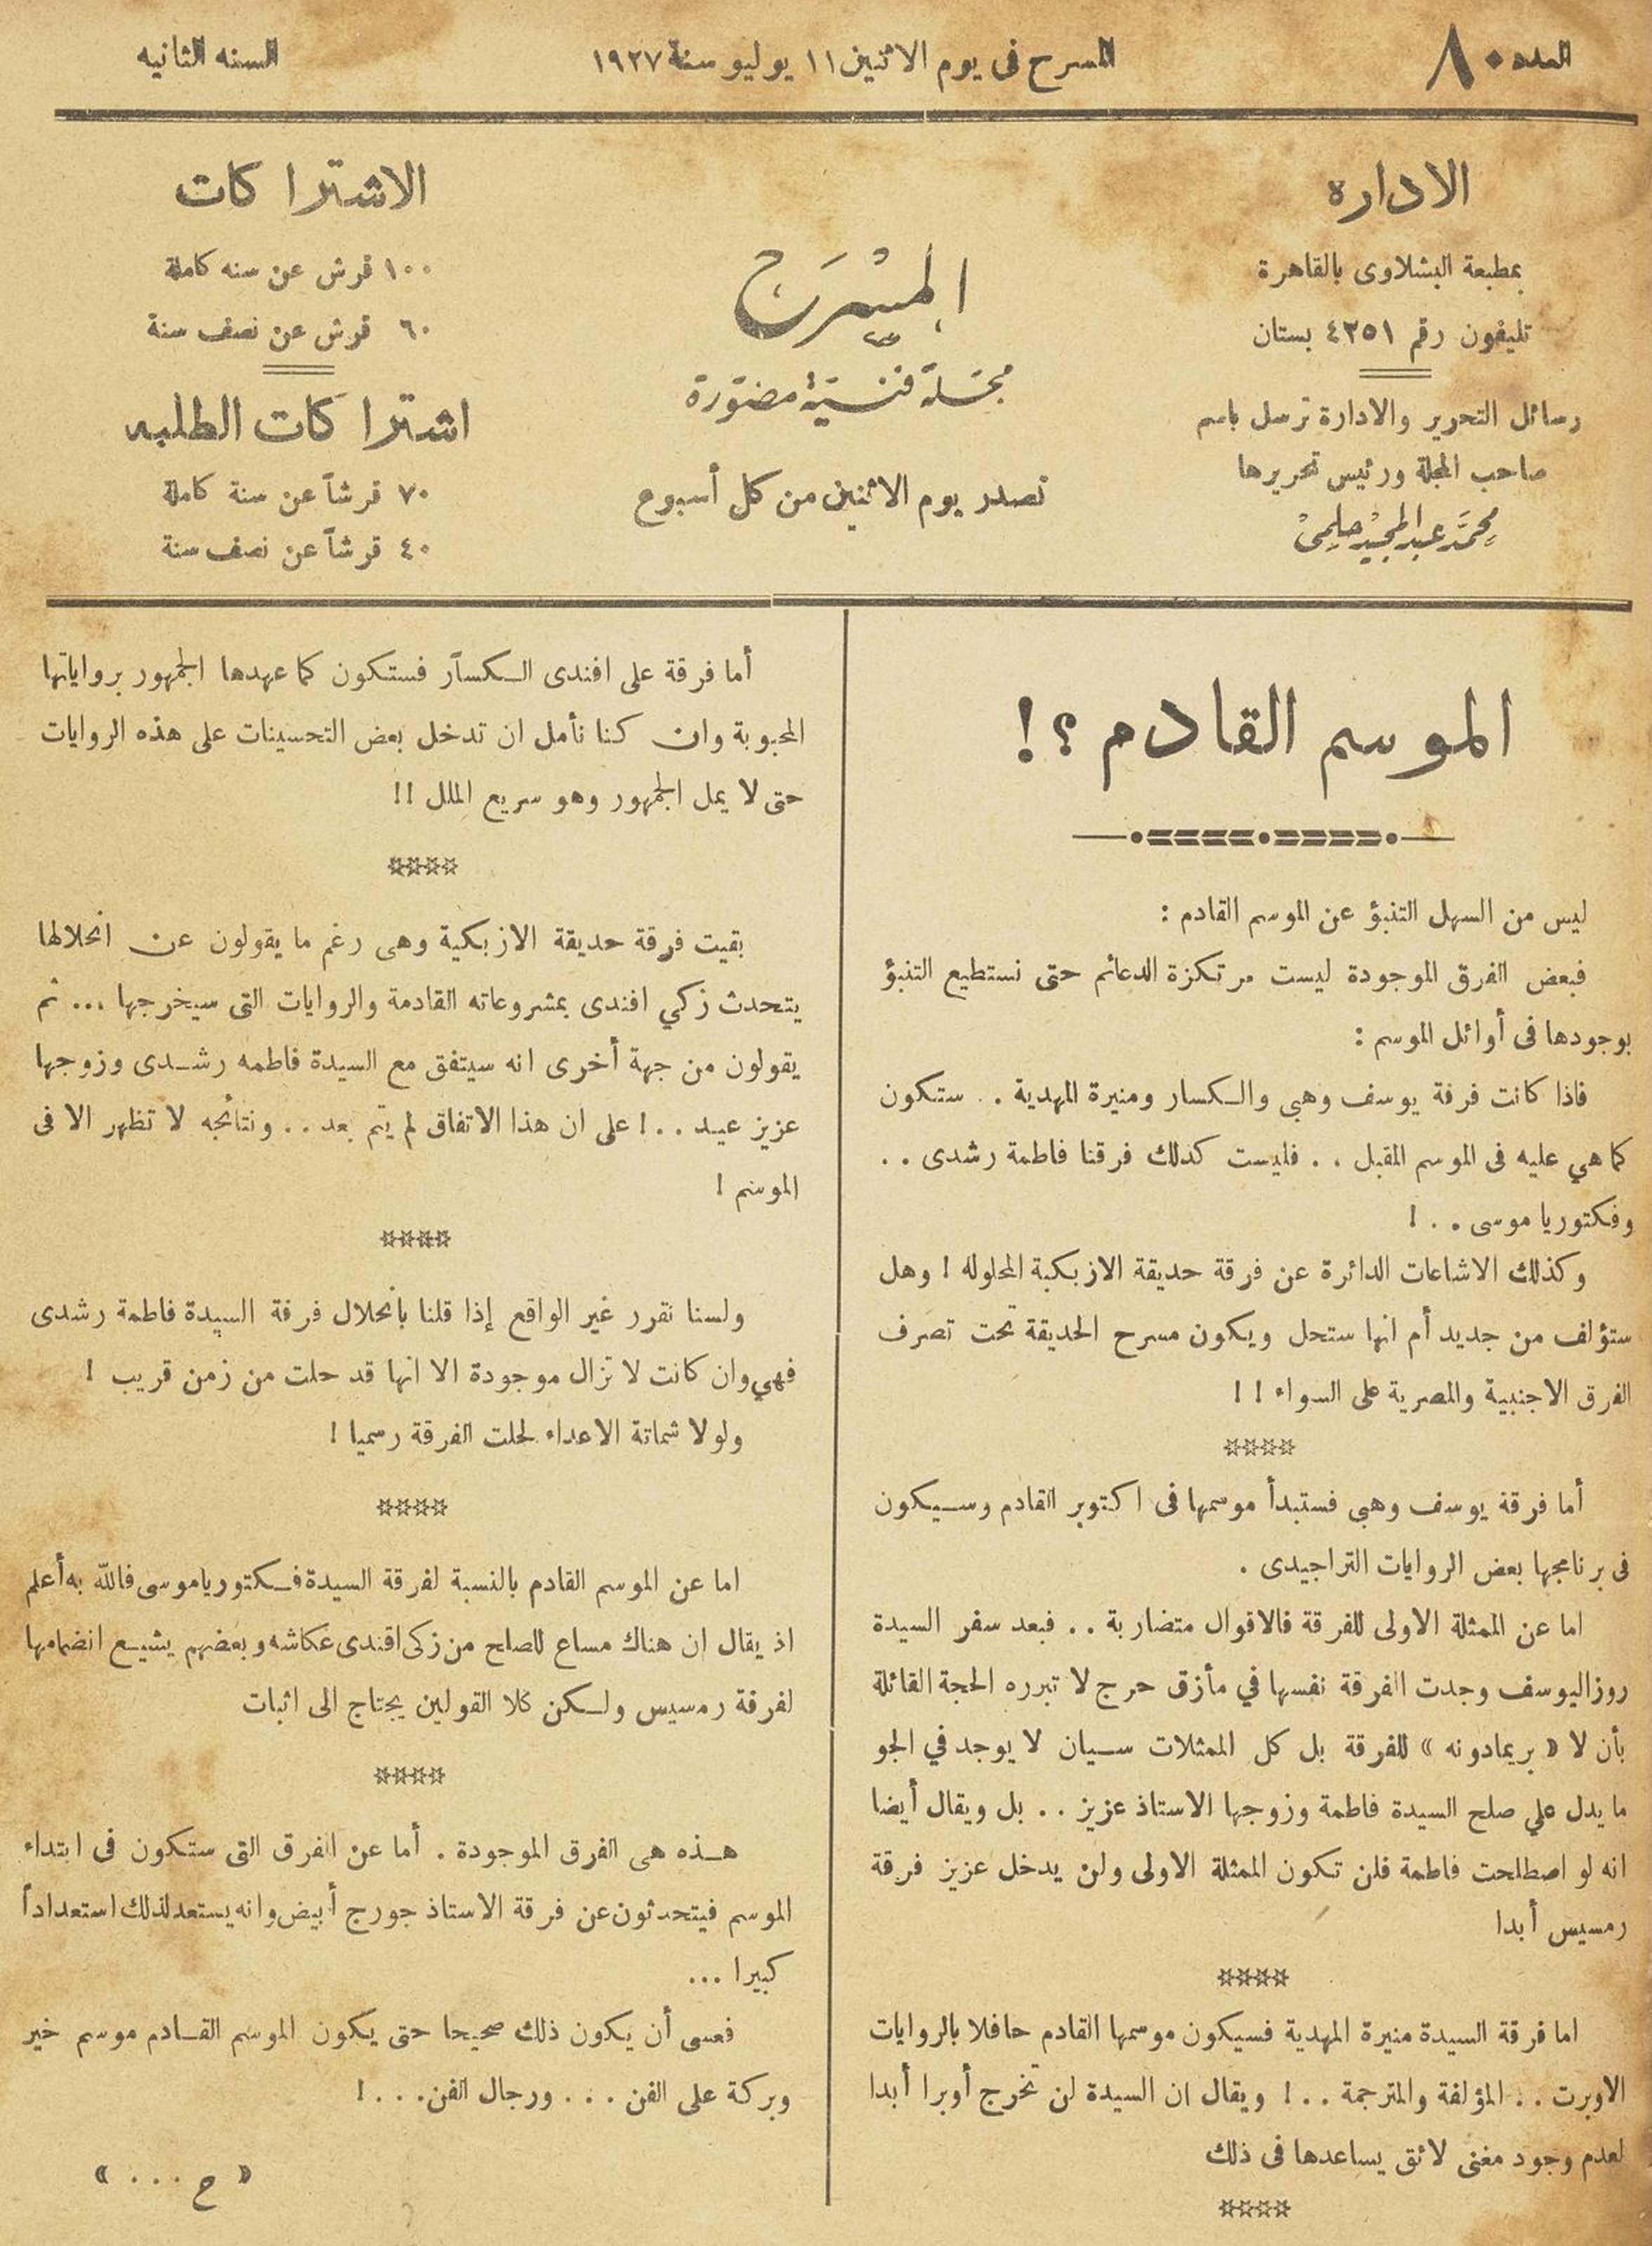 العدد ٨٠
المسرح فى يوم الاثنين ١١ يوليو سنة ١٩٢٧
السنه الثانيه
الاداره
بمطبعة البشلاوى بالقاهرة
تليفون رقم ٤٢٥١ بستان
رسائل التحرير والادارة ترسل باسم
صاحب المجلة ورئيس تحريرها
محمد عبد المجيد حلمى
المسرح
مجلة فنية مصورة
تصدر يوم الاثنين من كل أسبوع
الاشتراكات
١٠٠ قرش عن سنه كاملة
٦٠ قرش عن نصف سنة
اشتراكات الطلبه
٧٠ قرشاً عن سنة كاملة
٤٠ قرشاً عن نصف سنة
الموسم القادم ؟!
ليس من السهل التنبؤ عن الموسم القادم :
فبعض الفرق الموجودة ليست مرتكزة الدعائم حتى نستطيع التنبؤ
بوجودها فى أوائل الموسم :
فاذا كانت فرقة يوسف وهبي والكسار ومنيرة المهدية . . ستكون
كما هي عليه فى الموسم المقبل . . فليست كذلك فرقتا فاطمة رشدى . .
وفكتوريا موسى . . !
وكذلك الاشاعات الدائرة عن فرقة حديقة الازبكية المحلوله ! وهل
ستؤلف من جديد أم انها ستحل ويكون مسرح الحديقة تحت تصرف
الفرق الاجنبية والمصرية على السواء ! !
****
أما فرقة يوسف وهبي فستبدأ موسمها فى اكتوبر القادم وسيكون
فى برنامجها بعض الروايات التراجيدى .
اما عن الممثلة الاولى للفرقة فالاقوال متضاربة . . فبعد سفر السيدة
روزاليوسف وجدت الفرقة نفسها في مأزق حرج لا تبرره الحجة القائلة
بأن لا « بريمادونه » للفرقة بل كل الممثلات سيان لا يوجد في الجو
ما يدل علي صلح السيدة فاطمة وزوجها الاستاذ عزيز . . بل ويقال أيضا
انه لو اصطلحت فاطمة فلن تكون الممثلة الاولى ولن يدخل عزيز فرقة
رمسيس أبدا
****
اما فرقة السيدة منيرة المهدية فسيكون موسمها القادم حافلا بالروايات
الاوبرت . . المؤلفة والمترجمة . . ! ويقال ان السيدة لن تخرج أوبرا أبدا
لعدم وجود مغنى لائق يساعدها فى ذلك
****
أما فرقة على افندى الكسار فستكون كما عهدها الجمهور برواياتها
المحبوبة وان كنا نأمل ان تدخل بعض التحسينات على هذه الروايات
حتى لا يمل الجمهور وهو سريع الملل !!
****
بقيت فرقة حديقة الازبكية وهى رغم ما يقولون عن انحلالها
يتحدث زكي افندى بمشروعاته القادمة والروايات التى سيخرجها ... ثم
يقولون من جهة أخرى انه سيتفق مع السيدة فاطمه رشدى وزوجها
عزيز عيد . . ! على ان هذا الاتفاق لم يتم بعد . . ونتائجه لا تظهر الا فى
الموسم !
****
ولسنا نقرر غير الواقع إذا قلنا بأنحلال فرقة السيدة فاطمة رشدى
فهي وان كانت لا تزال موجودة الا انها قد حلت من زمن قريب !
ولولا شماتة الاعداء لحلت الفرقة رسميا !
****
اما عن الموسم القادم بالنسبة لفرقة السيدة فكتوريا موسى فالله به أعلم
اذ يقال ان هناك مساع للصلح من زكى افندى عكاشه وبعضهم يشيع انضمامها
لفرقة رمسيس ولكن كلا القولين يحتاج الى اثبات
****
هذه هى الفرق الموجودة . أما عن الفرق التى ستكون فى ابتداء
الموسم فيتحدثون عن فرقة الاستاذ جورج أبيض وانه يستعد لذلك استعداداً
كبيرا ...
فعسى أن يكون ذلك صحيحا حتى يكون الموسم القادم موسم خير
وبركة على الفن . . . ورجال الفن . . . !
« ح . . . »